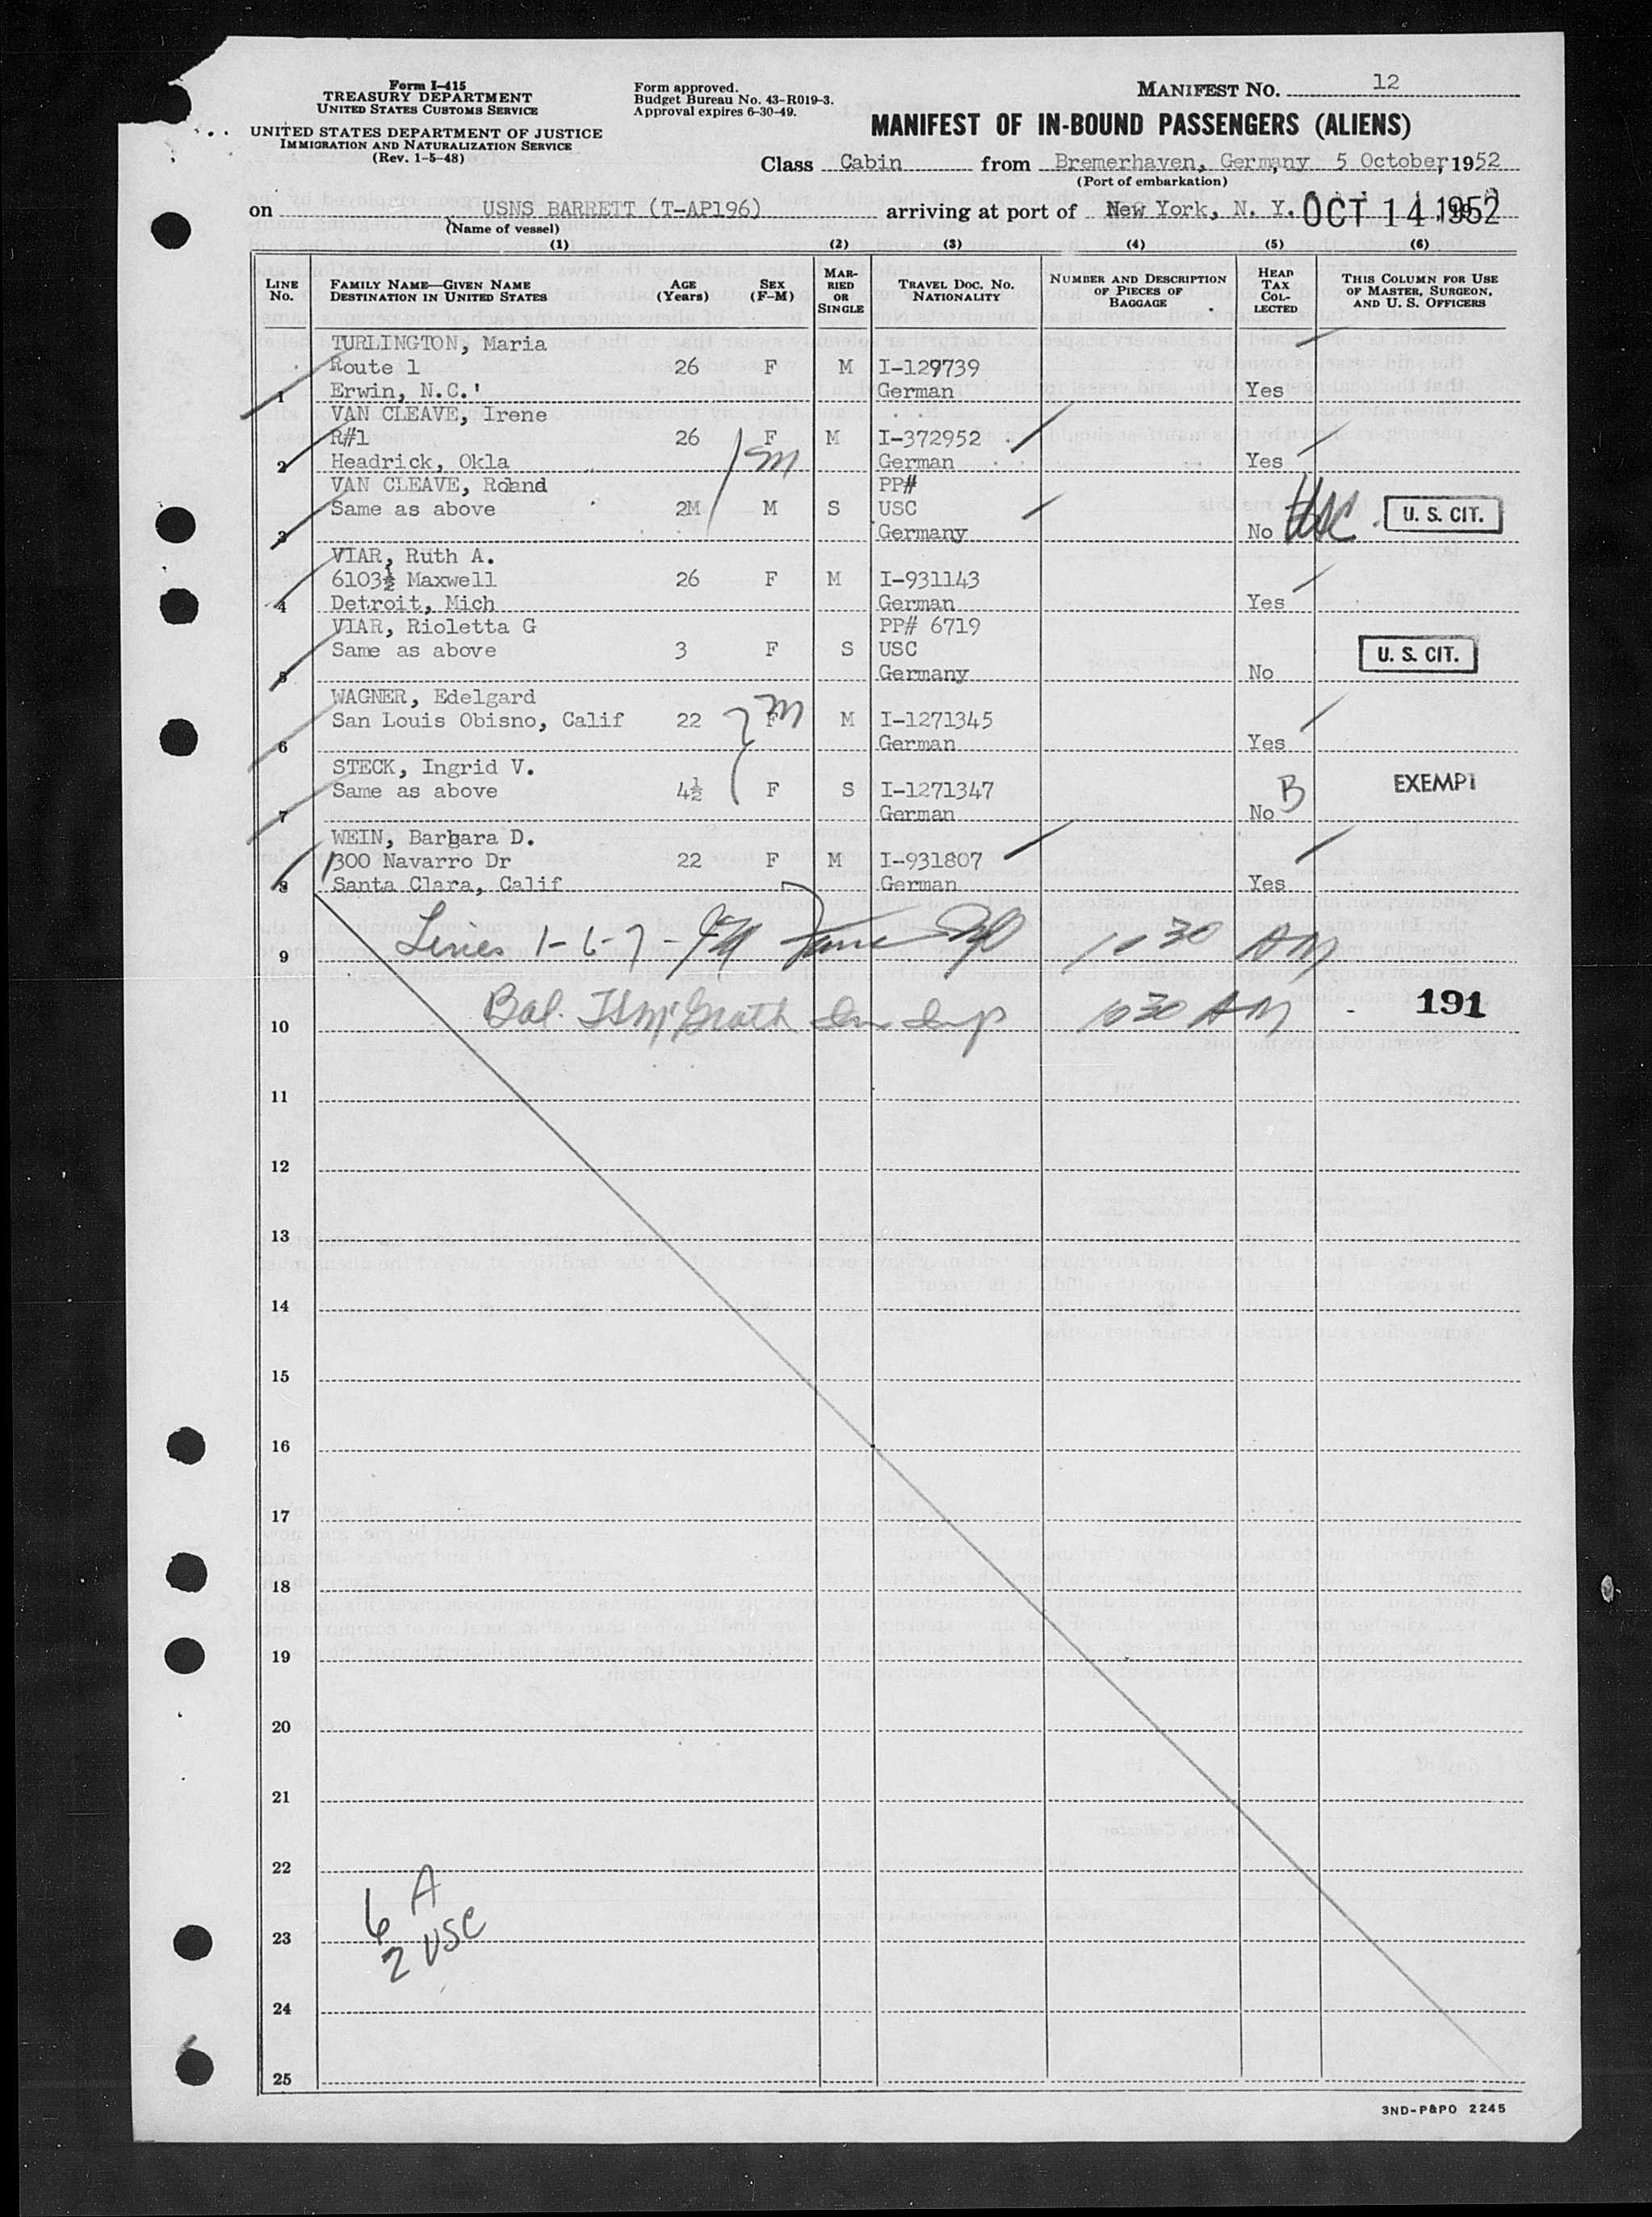 Form I-415
TREASURY DEPARTMENT
UNITED STATES CUSTOMS SERVICE
UNITED STATES DEPARTMENT OF JUSTICE
IMMIGRATION AND NATURALIZATION SERVICE
(Rev. 1-5-48)
Form approved.
Budget Bureau No. 43-R019-3.
Approval expires 6-30-49.
MANIFEST NO. 12
MANIFEST OF IN-BOUND PASSENGERS (ALIENS)
Class Cabin from Bremerhaven, Germany 5 October, 1952
(Port of embarkation)
on USNS BARRETT (T-AP196) arriving at port of New York, N. Y. OCT 14 1952
(Name of vessel)
(1) (2) (3) (4) (5) (6)
LINE NO. FAMILY NAME—GIVEN NAME DESTINATION IN UNITED STATES AGE (Years) SEX (F-M) MARRIED OR SINGLE TRAVEL DOC. NO. NATIONALITY NUMBER AND DESCRIPTION OF PIECES OF BAGGAGE HEAD TAX COLLECTED THIS COLUMN FOR USE OF MASTER, SURGEON, AND U. S. OFFICERS
TURLINGTON, Maria
Route 1 26 F M I-129739
1 Erwin, N.C.' German Yes
VAN CLEAVE, Irene
R#1 26 F M I-372952
2 Headrick, Okla m German Yes
VAN CLEAVE, Roland PP#
Same as above 2M M S USC
3 Germany No USC U. S. CIT.
VIAR, Ruth A.
6103½ Maxwell 26 F M I-931143
4 Detroit, Mich German Yes
VIAR, Rioletta G PP# 6719
Same as above 3 F S USC U. S. CIT.
5 Germany No
WAGNER, Edelgard
San Louis Obisno, Calif 22 F m M I-1271345
6 German Yes
STECK, Ingrid V.
Same as above 4½ F S I-1271347 B EXEMPT
7 German No
WEIN, Barbara D.
1300 Navarro Dr 22 F M I-931807
8 Santa Clara, Calif German Yes
9 Lines 1-6-7- 10 30 AM
10 Bal. McGrath 10 30 AM 191
11
12
13
14
15
16
17
18
19
20
21
22
6 A
23
2 USC
24
25
3ND-P&PO 2245